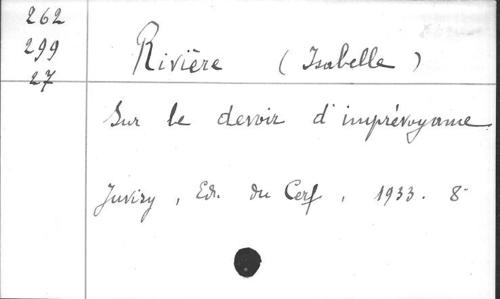 262
299
27
Rivière (Isabelle)
Sur le devoir d'imprévoyance
Juvisy, Ed. du Cerf, 1933. 8°